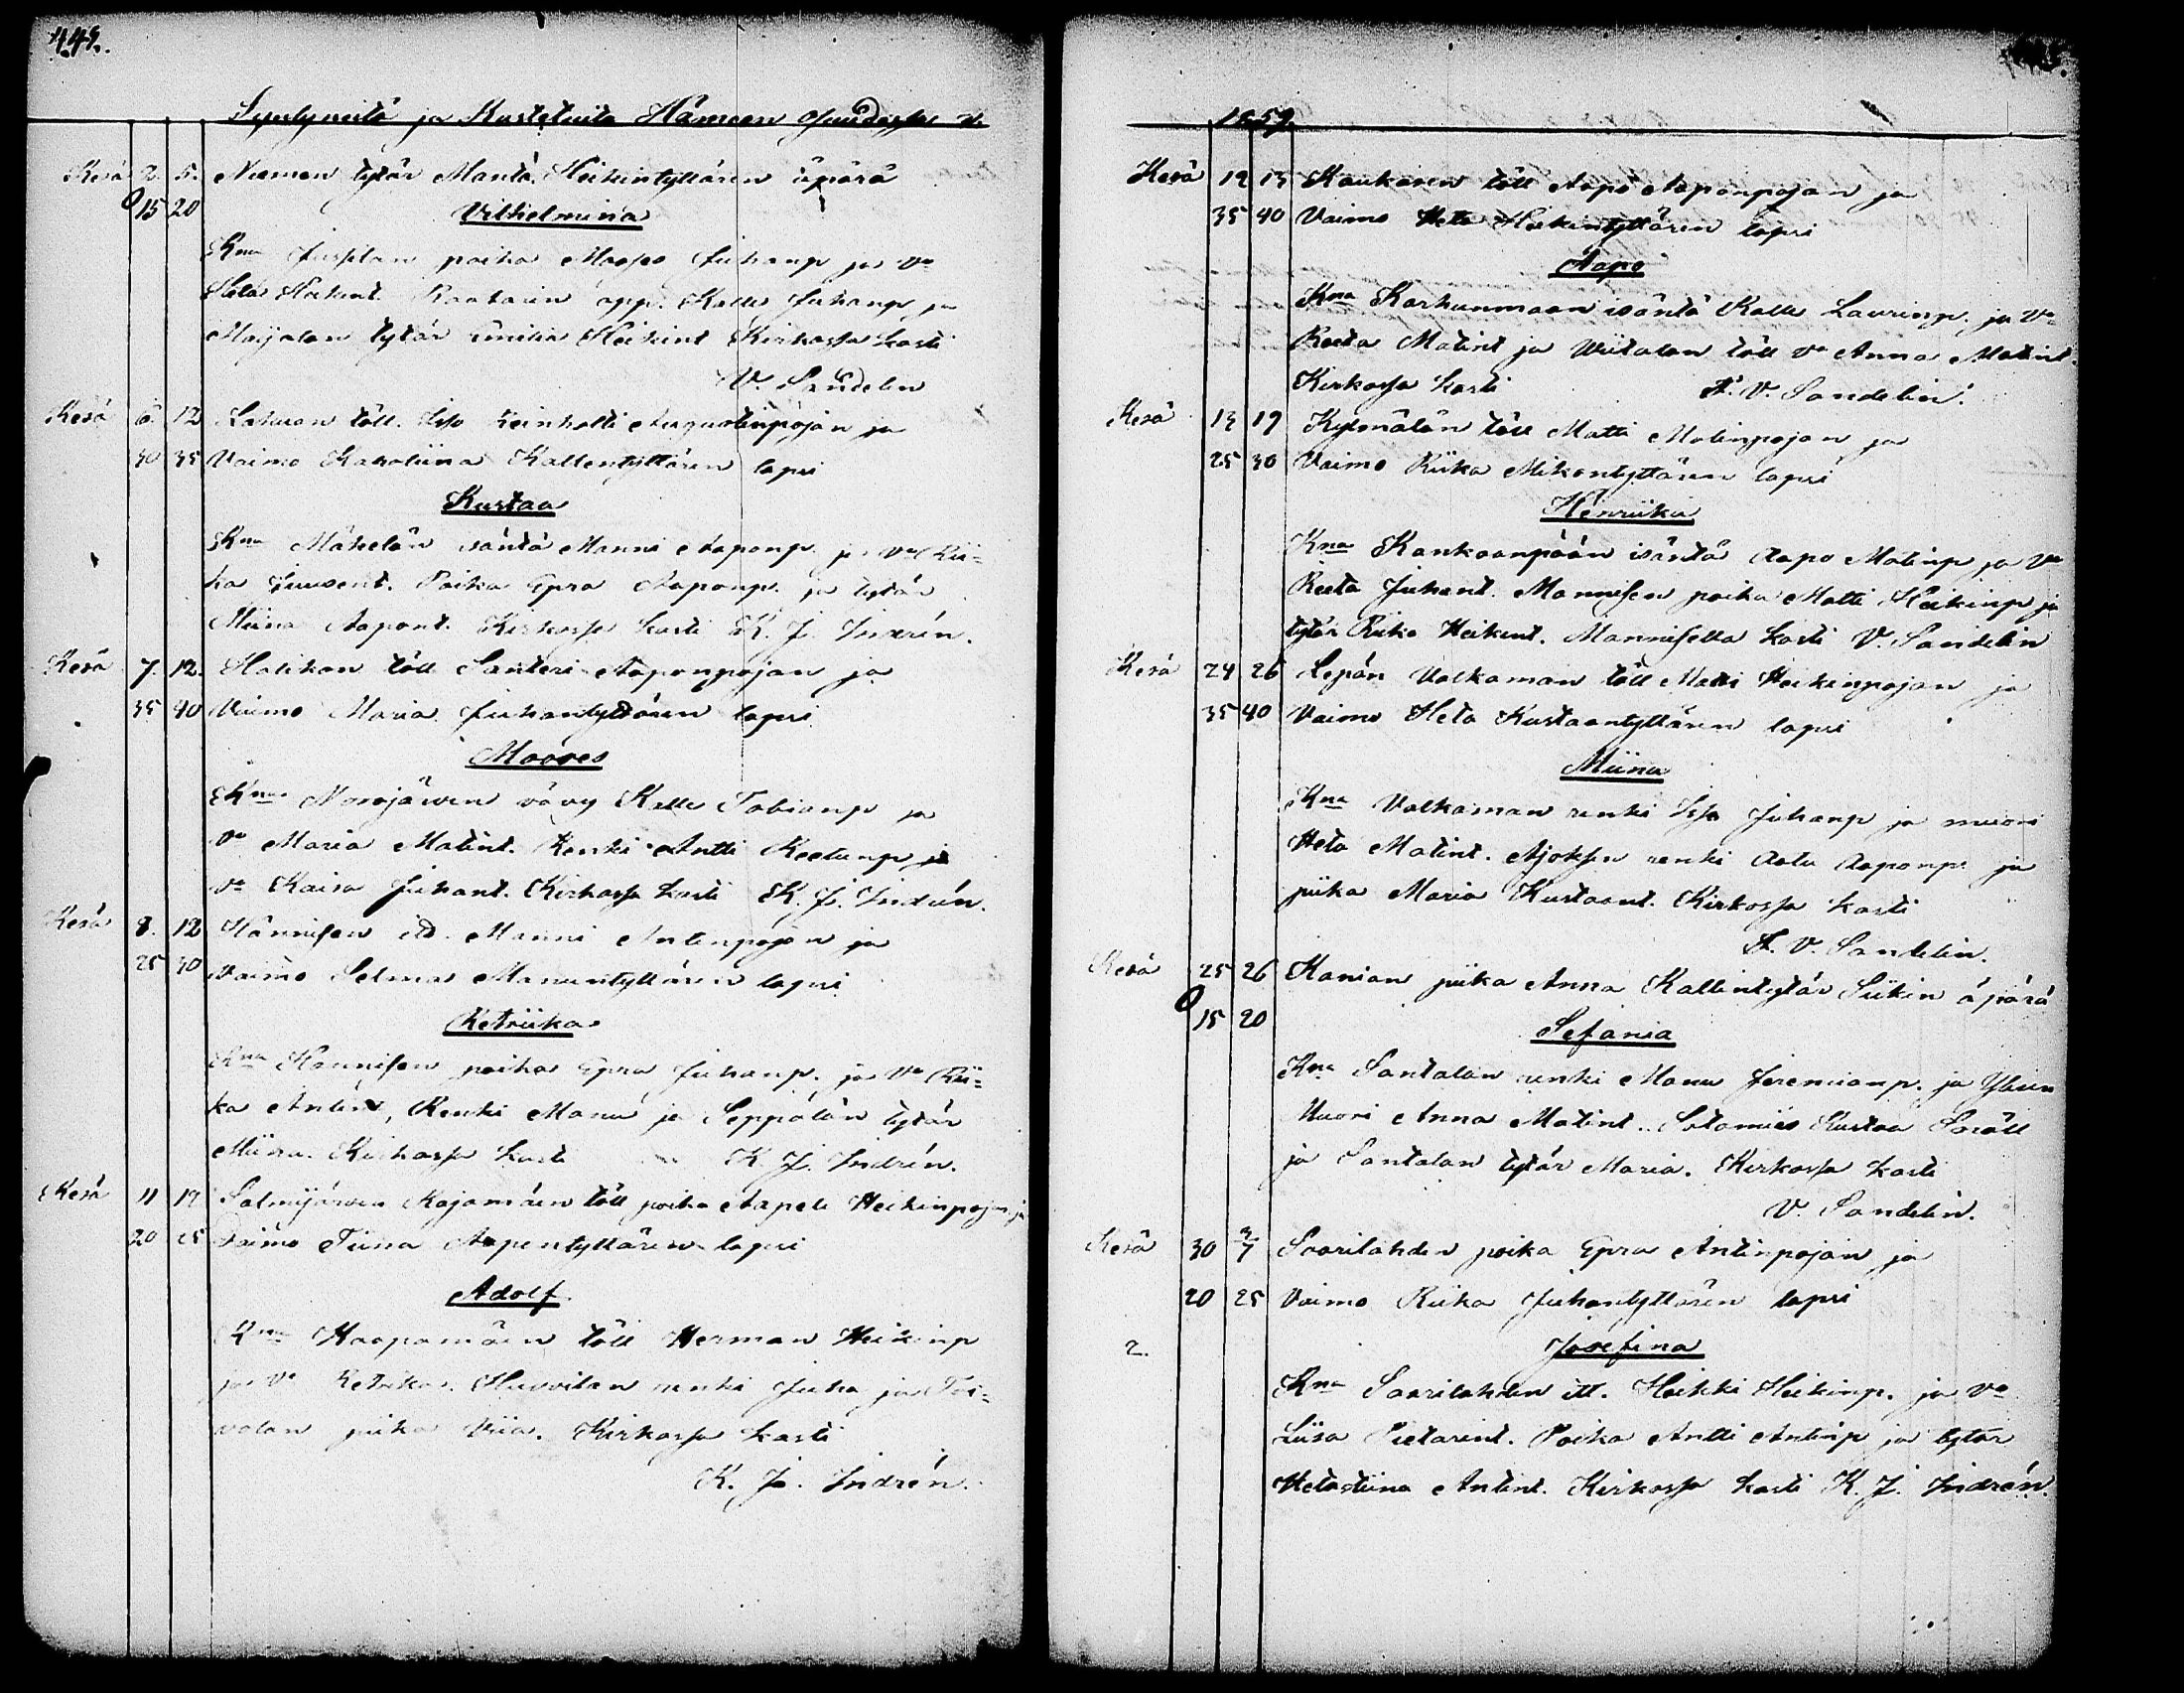 444.
Syntyneitä ja Kastetuita Hämeen
Kesä 2. 5. Niemen tytär Manta Heikintyttären äpärä
15 20 Vilhelmina
Kna poika Mooses Juhanp ja Va
Heta Heikint. Raatarin opp. Kalle Juhanp. ja
Maijalan tytär Heikint Kirkossa kasti
V. Sandelin
Kesä 6. 12 töll. Keinholti Augustinpojan ja
30 35 Vaimo Karoliina Kallentyttären lapsi
Kustaa
Kna Mäkelän isäntä Manni Aaponp. ja Va Rii-
ka Juusent. Poika Epra Aaponp. ja tytär
Miina Aapont. Kirkossa kasti K. J. Indrén.
Kesä 7. 12. Halikan töll Santeri Aaponpojan ja
35 40 Vaimo Maria Juhantyttären lapsi
Mooses
Kna Norojärven vävy Kalle Tobianp ja
Va Maria Matint. Renki Antti Eetunp ja
Va Kaisa Juhant. Kirkossa kasti K. J. Indrén.
Kesä 8. 12 Hännisen itd. Manni Antinpojan ja
25 30 Vaimo Selma Manuntyttären lapsi
Retriika
Kna Hännisen poika Epra Juhanp. ja Va Rii-
ka Antint, Renki Manu ja Seppälän tytär
Miina. Kirkossa kasti K. J. Indrén.
Kesä 11 19 Salmijärven Majamäen töll poika Aapeli Heikinpojan ja
20 25 Vaimo Tiina Aapentyttären lapsi
Adolf
Kna Haapamäen töll Herman Heikinp
ja Va Retriika. Huvvilan renki Juha ja Toi-
valan piika Viia. Kirkossa kasti
K. J. Indrén.
1859.
Kesä 12 13 Kaukasen töll Aapo Aaponpojan ja
35 40 Vaimo Heta Heikintyttären lapsi
Aapo
Kna Karhunmaan isäntä Kalle Laurinp. ja Va
Reeta Matint ja Wiitalan töll Va Anna Matint.
Kirkossa kasti F. V. Sandelin.
Kesä 13 19 Kylmälän töll Matti Matinpojan ja
25 30 Vaimo Riika Mikontyttären lapsi
Henriika
Kna Kankaanpään isäntä Aapo Matinp ja Va
Reeta Juhant. Mannisen poika Matti Heikinp ja
tytär Riika Heikint. Mannisella kasti V. Sandelin
Kesä 24 26 Lepän Valkaman töll Matti Heikinpojan ja
35 40 Vaimo Heta Kustaantyttären lapsi
Miina
Kna Valkaman renki Juhanp ja muori
Heta Matint. Ajoksen renki Aatu Aaponp. ja
piika Maria Kustaant. Kirkossa kasti
F. V. Sandelin.
Kesä 25 26 Hanian piika Anna Kallentytär Siikin äpärä
15 20 Sefania
Kna Santalan renki Manu Jeremianp. ja
Muori Anna Matint. Sotamies Kustaa
ja Santalan tytär Maria. Kirkossa kasti
V. Sandelin.
Kesä 30 3/7 Saarilahden poika Epra Antinpojan ja
20 25 Vaimo Riika Juhantyttären lapsi
2. Josefina
Kna Saarilahden itl. Heikki Heikinp. ja Va
Liisa Pietarint. Poika Antti Antinp ja tytär
Hetastiina Antint. Kirkossa kasti K. J. Indrén.